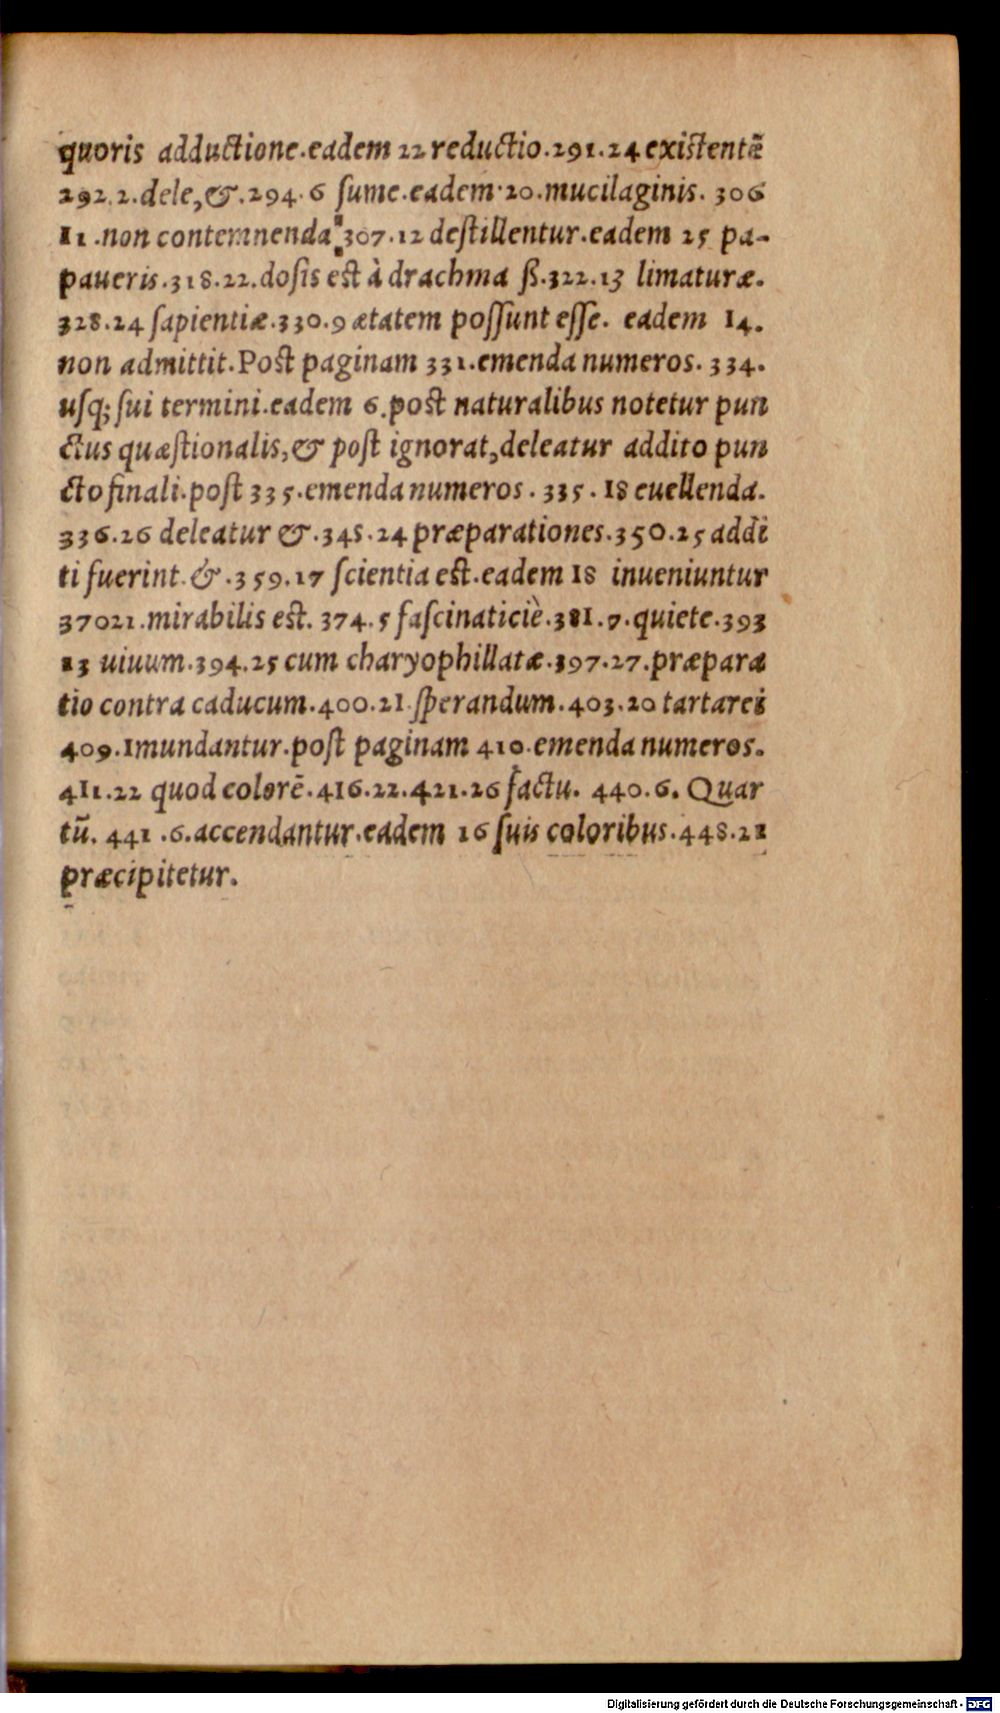 quoris adductione.eadem 22 reductio.291.24 existentē
292.2.dele,&.294.6 ſume.eadem.20.mucilaginis. 306
11.non contemnenda.307.12 deſtillentur.eadem 25 pa-
paueris.318.22.doſis est à drachma ß.322.13 limaturæ.
328.24 ſapientiæ.330.9 ætatem poſſunt eſſe. eadem 14.
non admittit.Post paginam 331.emenda numeros.334.
uſq; ſui termini.eadem 6.post naturalibus notetur pun
ctus quæſtionalis,& poſt ignorat,deleatur addito pun
cto finali.poſt 335.emenda numeros. 335. 18 euellenda.
336.26 deleatur &.345.24 præparationes.350.25 addi
ti fuerint.&.359.17 ſcientia est.eadem 18 inueniuntur
37021.mirabilis est. 374.5 faſcinaticiè.381.7.quiete.393
13 uiuum.394.25 cum charyophillatæ.397.27.præpara
tio contra caducum.400.21.ſperandum.403.20 tartarei
409.1mundantur.poſt paginam 410.emenda numeros.
411.22 quod colorē.416.22.421.26 factu. 440.6. Quar
tū. 441.6.accendantur.eadem 16 ſuis coloribus.448.21
præcipitetur.
Digitalisierung gefördert durch die Deutsche Forschungsgemeinschaft - DFG